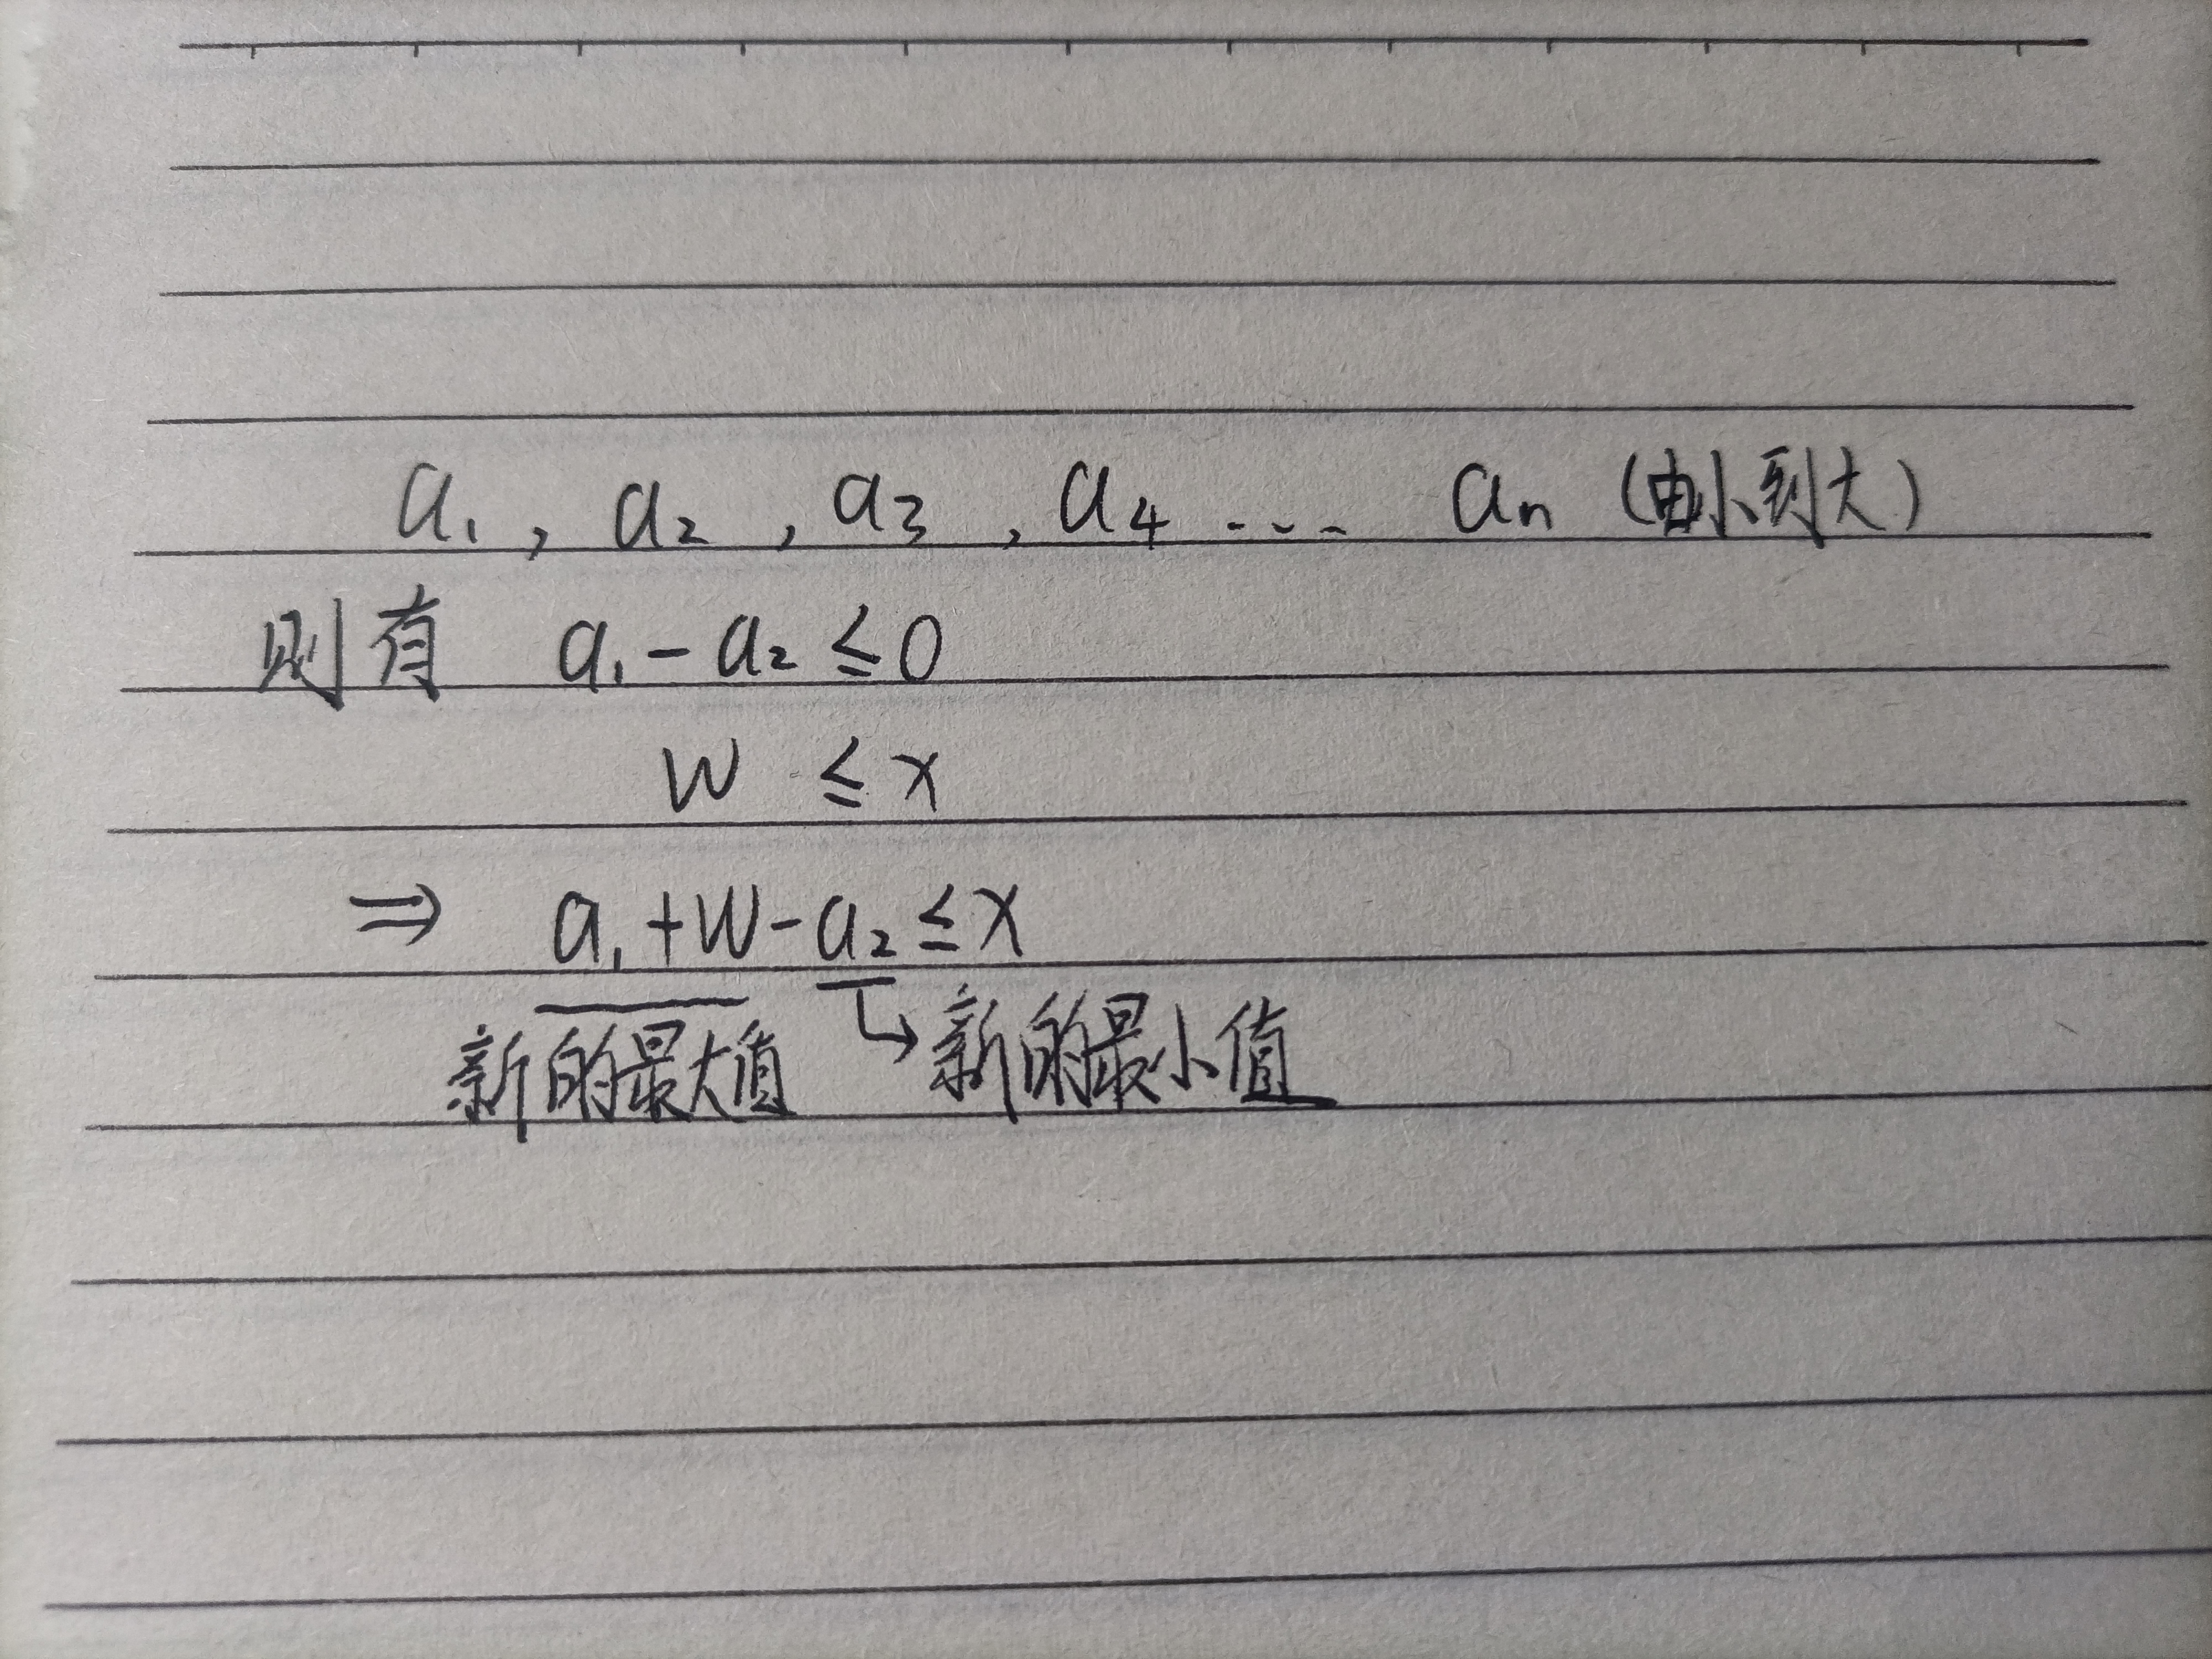 a₁, a₂, a₃, a₄ ... aₙ (由小到大)
则有 a₁ - a₂ ≤ 0
W ≤ x
⇒ a₁ + W - a₂ ≤ x
新的最大值 ↳ 新的最小值